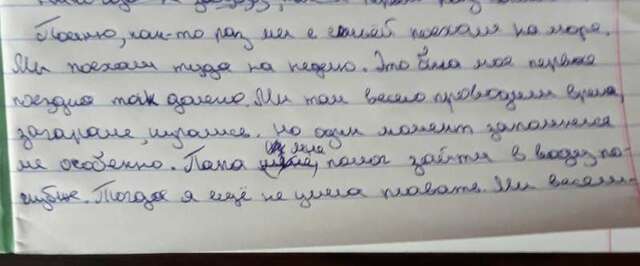 Помню, как-то раз мы с семьёй поехали на море.
Мы поехали туда на неделю. Это была моя первая
поездка так далеко. Мы там весело проводили время,
загорали, купались. Но один момент запомнился
мне особенно. Папа меня, помог зайти в воду по-
глубже. Тогда я ещё не умела плавать. Мы весели-